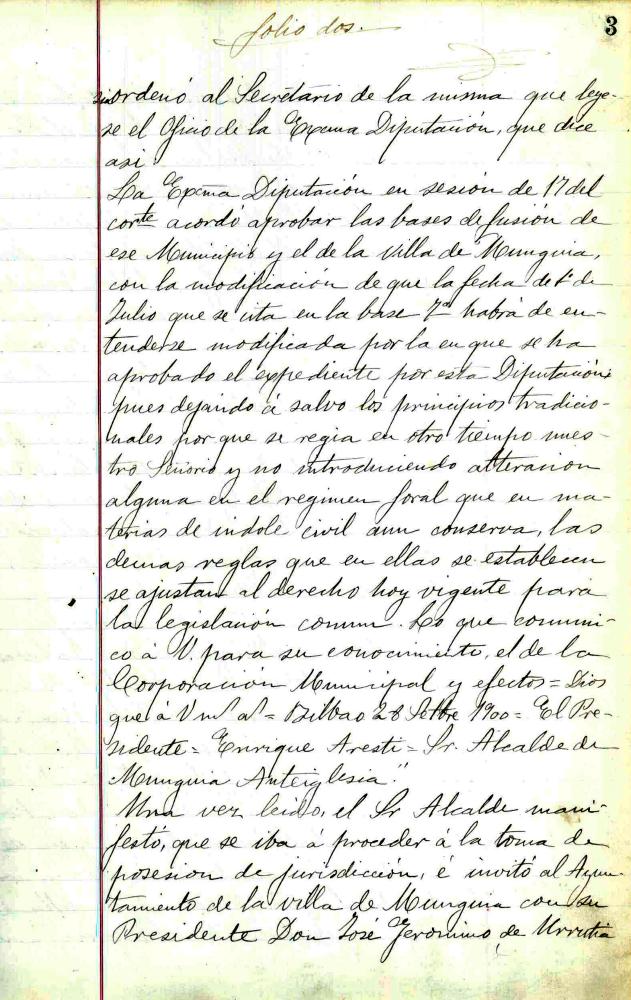 folio dos.
3
ordenó al Secretario de la misma que leye-
se el Oficio de la Excma Diputación, que dice
asi.
La Excma Diputación en sesión de 17 del
corte acordó aprobar las bases de fusión de
ese Municipio y el de la Villa de Munguia,
con la modificación de que la fecha de 1º de
Julio que se cita en la base 7ª habrá de en-
tenderse modificada por la en que se ha
aprobado el expediente por esta Diputación;
pues dejando á salvo los principios tradicio-
nales por que se regia en otro tiempo nues-
tro Señorio y no introduciendo alteracion
alguna en el regimen foral que en ma-
terias de indole civil aun conserva, las
demas reglas que en ellas se establecen
se ajustan al derecho hoy vigente para
la legislación comun. Lo que comuni-
co á V. para su conocimiento, el de la
Corporación Municipal y efectos = Dios
gue á V ms as = Bilbao 28 Setbre 1900 = El Pre-
sidente = Enrique Aresti = Sr. Alcalde de
Munguia Anteiglesia".
Una vez leido, el Sr Alcalde mani-
festó, que se iba á proceder á la toma de
posesion de jurisdicción, é invitó al Ayun-
tamiento de la villa de Munguia con su
Presidente Don José Geronimo de Urrutia